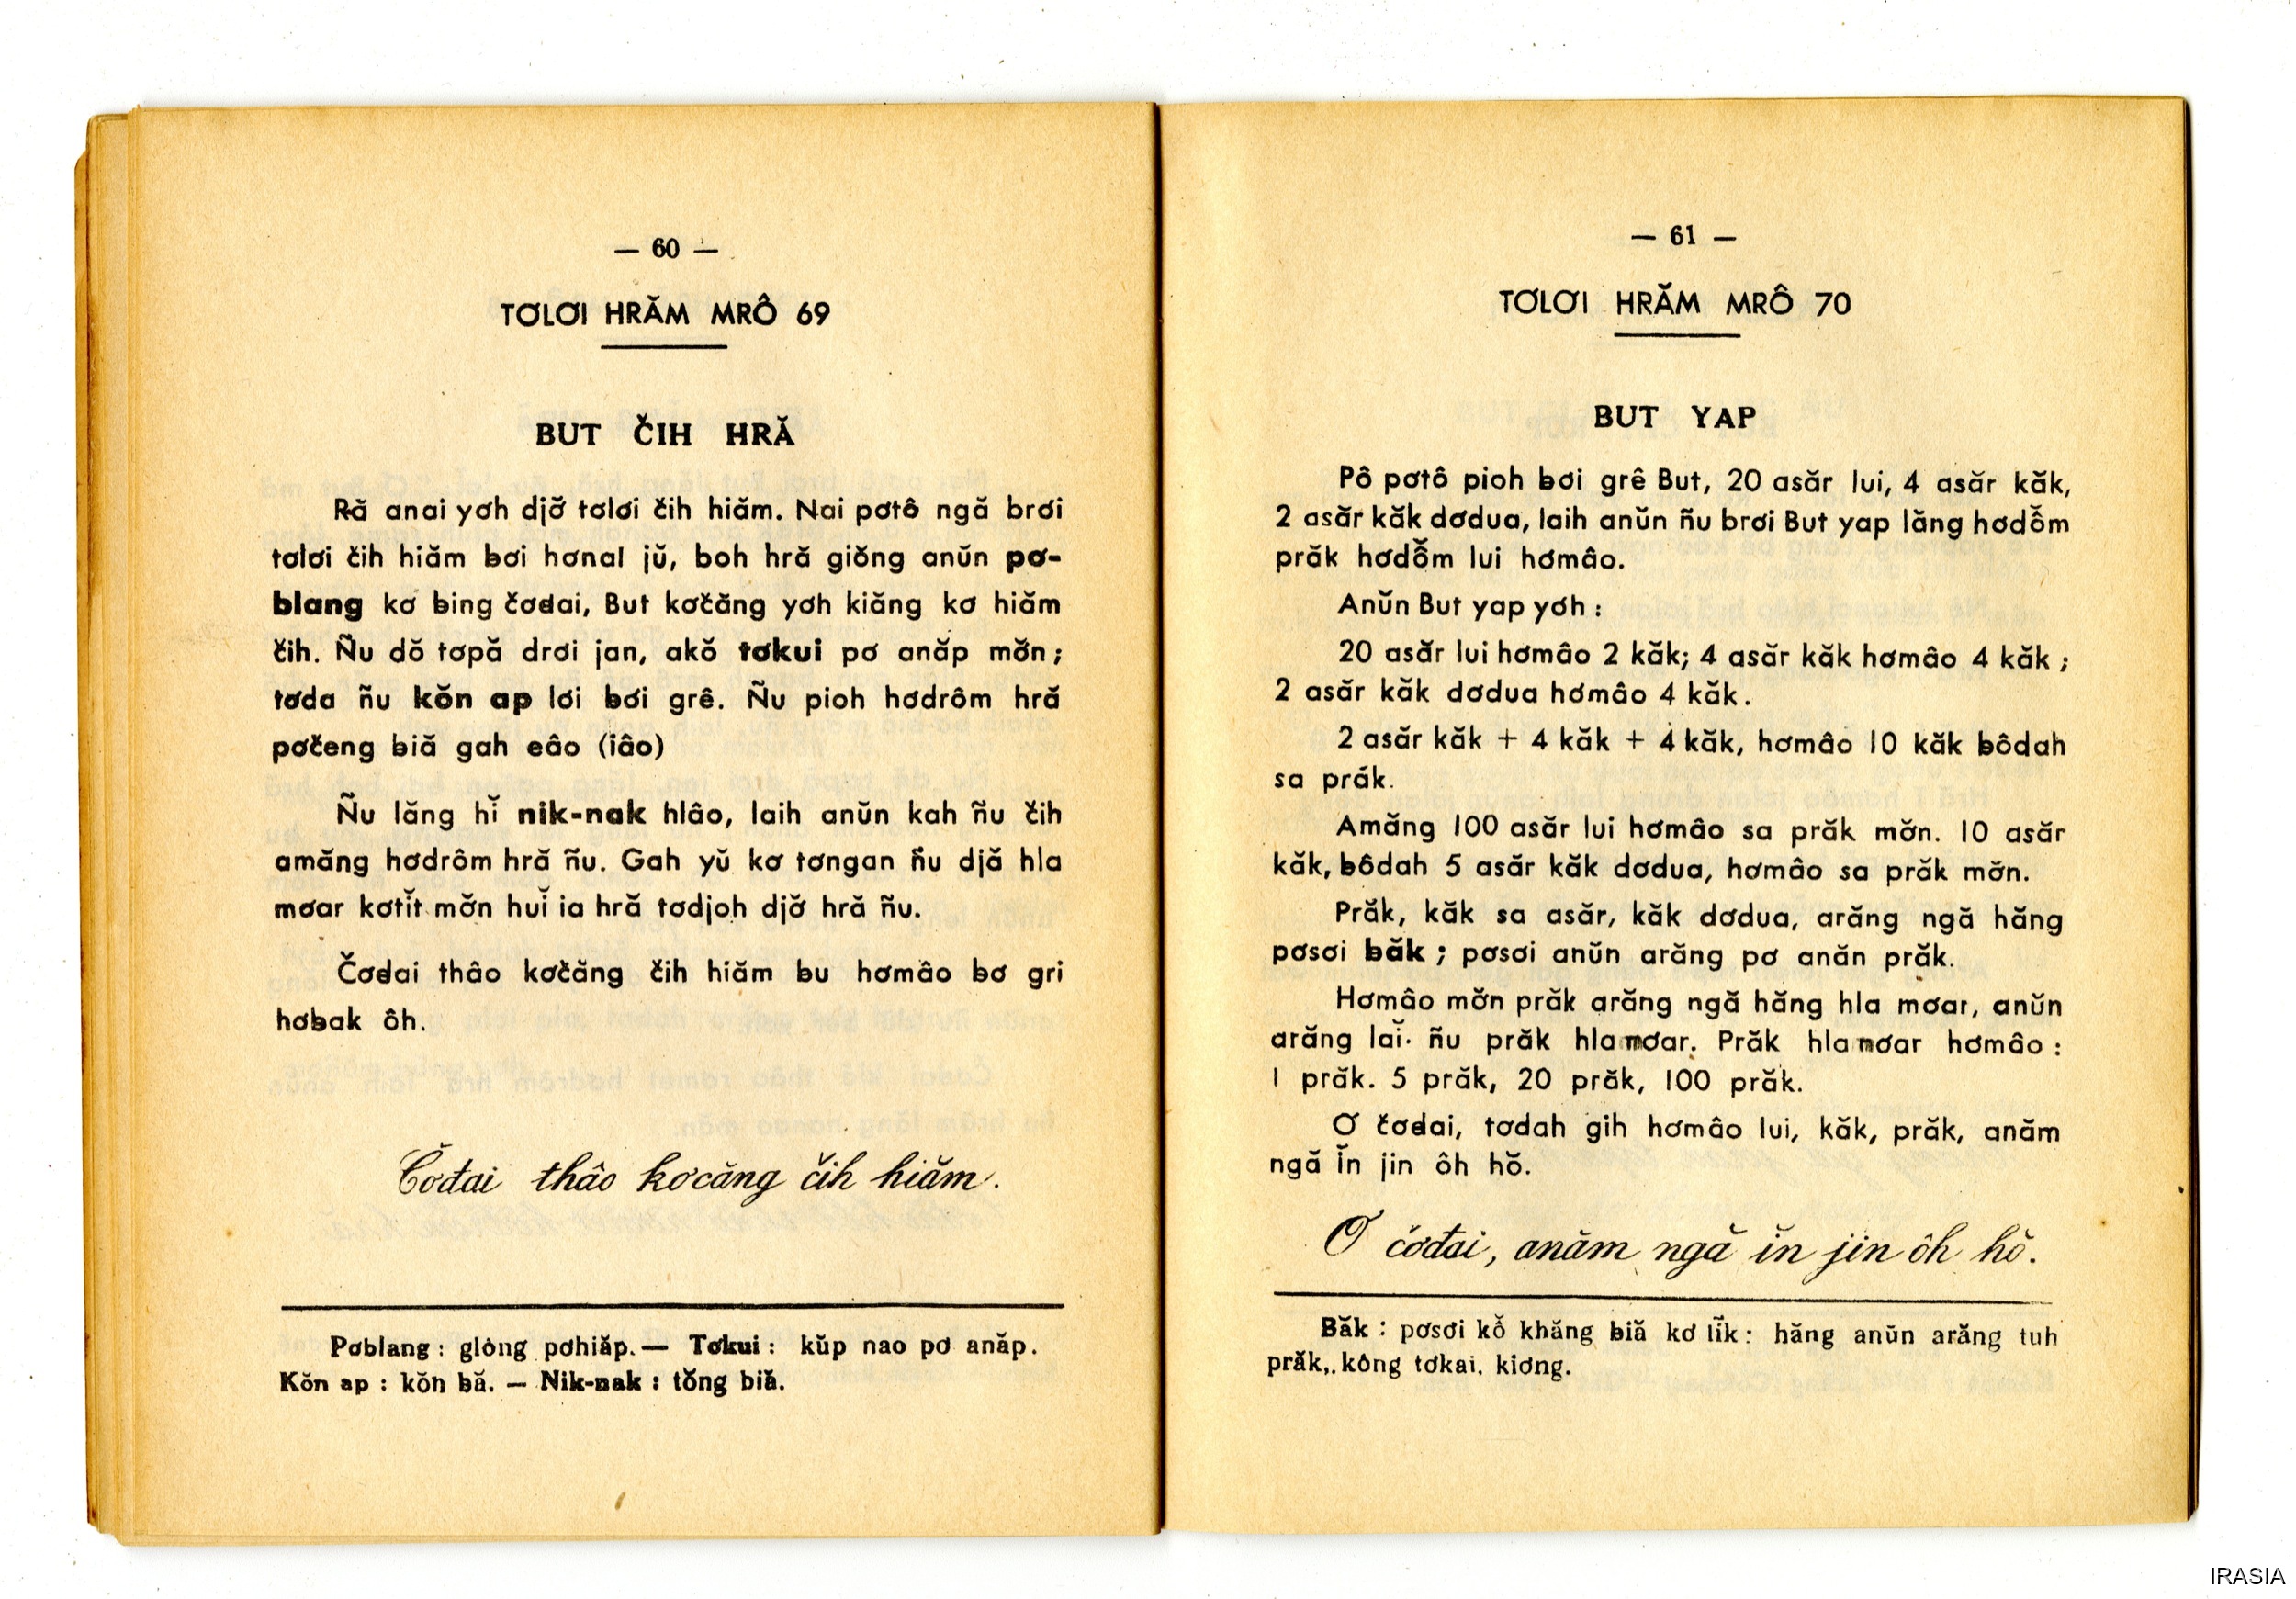 — 60 —
TƠLƠI HRĂM MRÔ 69
BUT ČIH HRĂ
Ră anai yơh djơ̆ tơlơi čih hiăm. Nai pơtô ngă brơi
tơlơi čih hiăm ƀơi hơnal jŭ, boh hră giŏng anŭn pơ-
blang kơ ƀing čơđai, But kơčăng yơh kiăng kơ hiăm
čih. Ñu dŏ tơpă drơi jan, akŏ tơkui pơ anăp mơ̆n ;
tơda ñu kŏn ap lơi ƀơi grê. Ñu pioh hơdrôm hră
pơčeng biă gah eâo (iâo)
Ñu lăng hĭ nik-nak hlâo, laih anŭn kah ñu čih
amăng hơdrôm hră ñu. Gah yŭ kơ tơngan ñu djă hla
mơar kơtĭt mơ̆n huĭ ia hră tơdjoh djơ̆ hră ñu.
Čơđai thâo kơčăng čih hiăm bu hơmâo bơ gri
hơƀak ôh.
Čơđai thâo kơcăng čih hiăm.
Pơblang : glông pơhiăp. — Tơkui : kŭp nao pơ anăp.
Kŏn ap : kŏn ƀă. — Nik-nak : tŏng biă.
— 61 —
TƠLƠI HRĂM MRÔ 70
BUT YAP
Pô pơtô pioh ƀơi grê But, 20 asăr lui, 4 asăr kăk,
2 asăr kăk dơdua, laih anŭn ñu brơi But yap lăng hơdô̆m
prăk hơdô̆m lui hơmâo.
Anŭn But yap yơh :
20 asăr lui hơmâo 2 kăk; 4 asăr kăk hơmâo 4 kăk ;
2 asăr kăk dơdua hơmâo 4 kăk.
2 asăr kăk + 4 kăk + 4 kăk, hơmâo 10 kăk ƀôdah
sa prăk.
Amăng 100 asăr lui hơmâo sa prăk mơ̆n. 10 asăr
kăk, ƀôdah 5 asăr kăk dơdua, hơmâo sa prăk mơ̆n.
Prăk, kăk sa asăr, kăk dơdua, arăng ngă hăng
pơsơi ƀăk ; pơsơi anŭn arăng pơ anăn prăk.
Hơmâo mơ̆n prăk arăng ngă hăng hla mơar, anŭn
arăng laĭ· ñu prăk hlamơar. Prăk hlamơar hơmâo :
1 prăk. 5 prăk, 20 prăk, 100 prăk.
Ơ čơđai, tơdah gih hơmâo lui, kăk, prăk, anăm
ngă ĭn jin ôh hŏ.
Ơ čơđai, anăm ngă ĭn jin ôh hŏ.
Ƀăk : pơsơi kô̆ khăng biă kơ lĭk : hăng anŭn arăng tuh
prăk,. kông tơkai, kiơng.
IRASIA